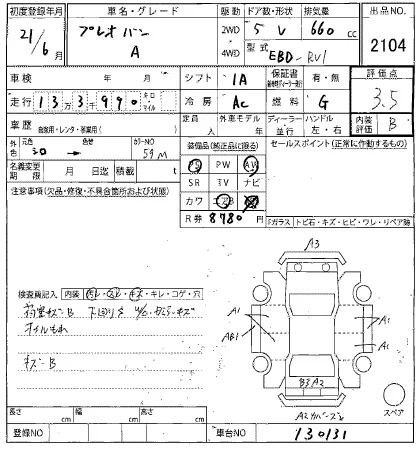 初度登録年月 車名・グレード 駆動 ドア数・形状 排気量 出品NO
21/6月 プレオバン A 2WD 4WD 5 V 660 cc 2104
型式 EBD-RV1
車検 年 月 シフト IA 保証書 有・無 評価点
走行 13万3千990 キロ マイル 冷房 AC 燃料 G 3.5
車歴 自家用・レンタ・事業用( ) 定員 人 外車モデル 年 ディーラー 並行 ハンドル 左・右 内装評価 B
外色 元色 色替 カラーNO 装備品(純正品に限る) セールスポイント(正常に作動するもの)
シロ → 59M PS PW AW
名義変更期限 月 日迄 積載 t SR TV ナビ
注意事項(欠品・修復・不具合箇所および状態) カワ エアB
R券 8780円
Fガラス トビ石・キズ・ヒビ・ワレ・リペア跡
A3
検査員記入 内装 汚レ・スレ・キズ・キレ・コゲ・穴
荷室キズB 下回りS
オイルもれ
キズB
A1 AB1 A1 A1
B3 A2
スペア
長さ cm 幅 cm 高さ cm
登録NO 車台NO 130131